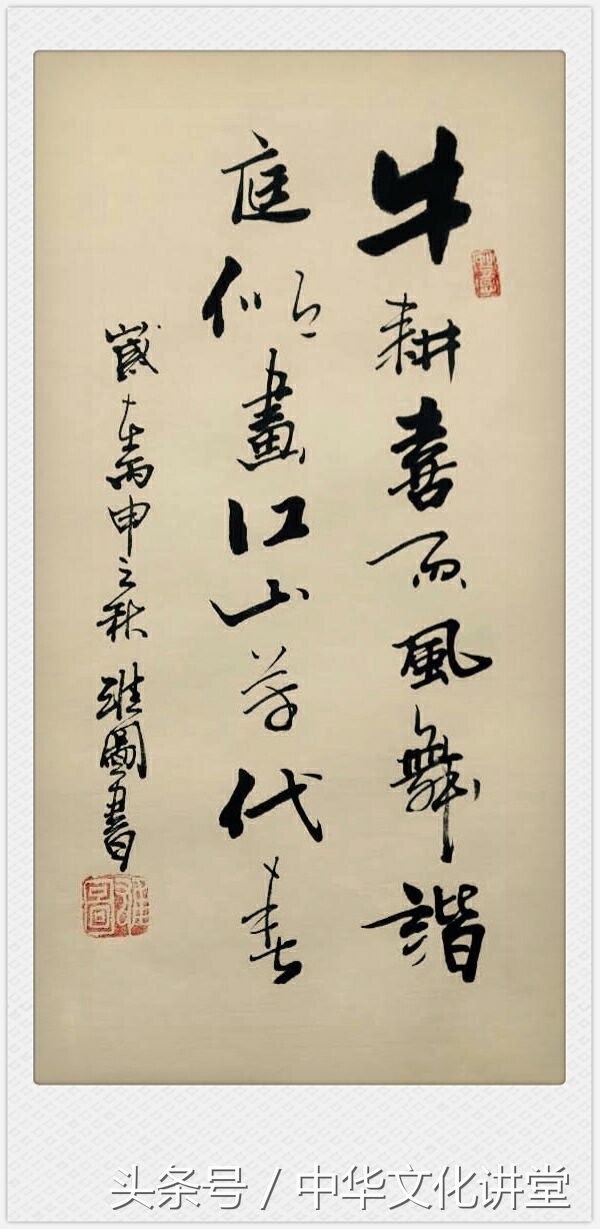 牛耕喜雨風舞諧
庭似畫江山萬代春
歲在丙申之秋 雅圖書
雅圖
头条号 / 中华文化讲堂